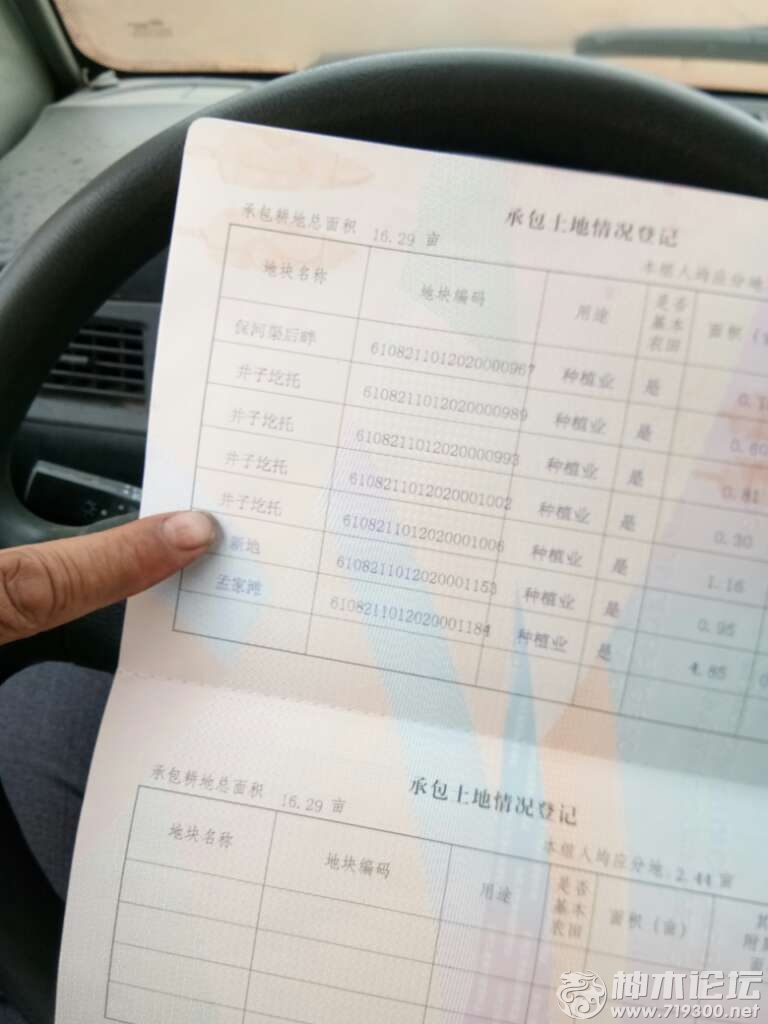 承包土地情况登记
承包耕地总面积 16.29 亩
本组人均应分地
地块名称 地块编码 用途 是否基本农田 面积
保河渠后畔 6108211012020000967 种植业 是
井子圪托 6108211012020000989 种植业 是 0.60
井子圪托 6108211012020000993 种植业 是 0.81
井子圪托 6108211012020001002 种植业 是 0.30
井子圪托 6108211012020001006 种植业 是 1.16
新地 6108211012020001153 种植业 是 0.95
孟家滩 6108211012020001184 种植业 是 4.85
承包土地情况登记
承包耕地总面积 16.29 亩
本组人均应分地 2.44 亩
地块名称 地块编码 用途 是否基本农田 面积（亩）
神木论坛
www.719300.net